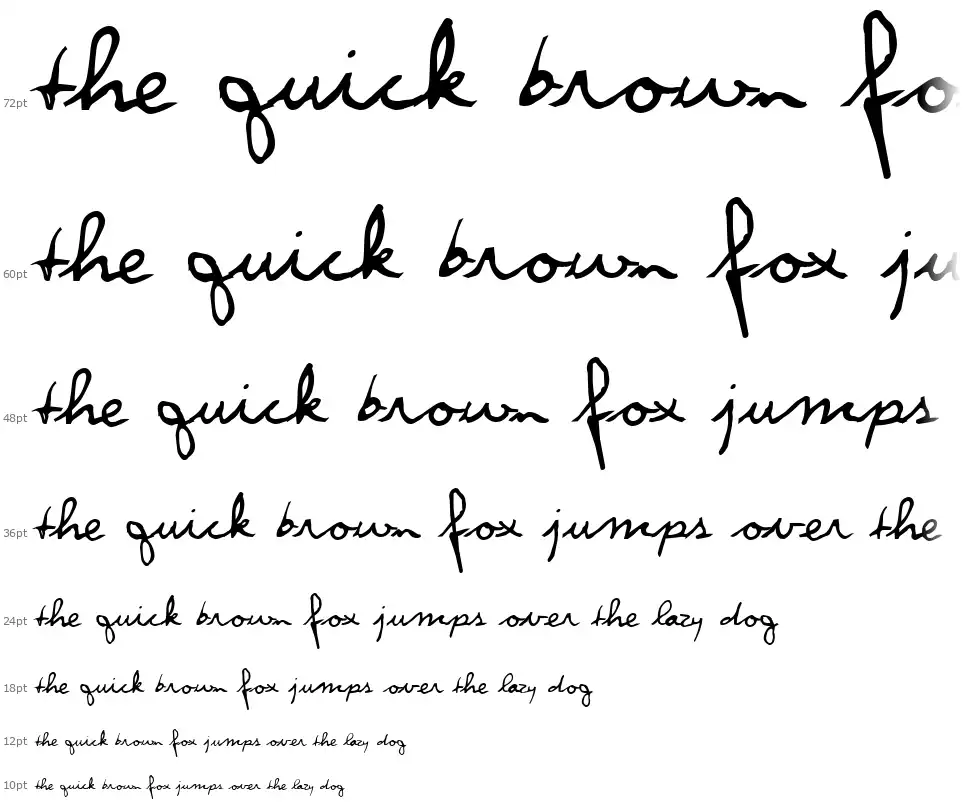 72pt the quick brown fo
60pt the quick brown fox ju
48pt the quick brown fox jumps
36pt the quick brown fox jumps over the
24pt the quick brown fox jumps over the lazy dog
18pt the quick brown fox jumps over the lazy dog
12pt the quick brown fox jumps over the lazy dog
10pt the quick brown fox jumps over the lazy dog